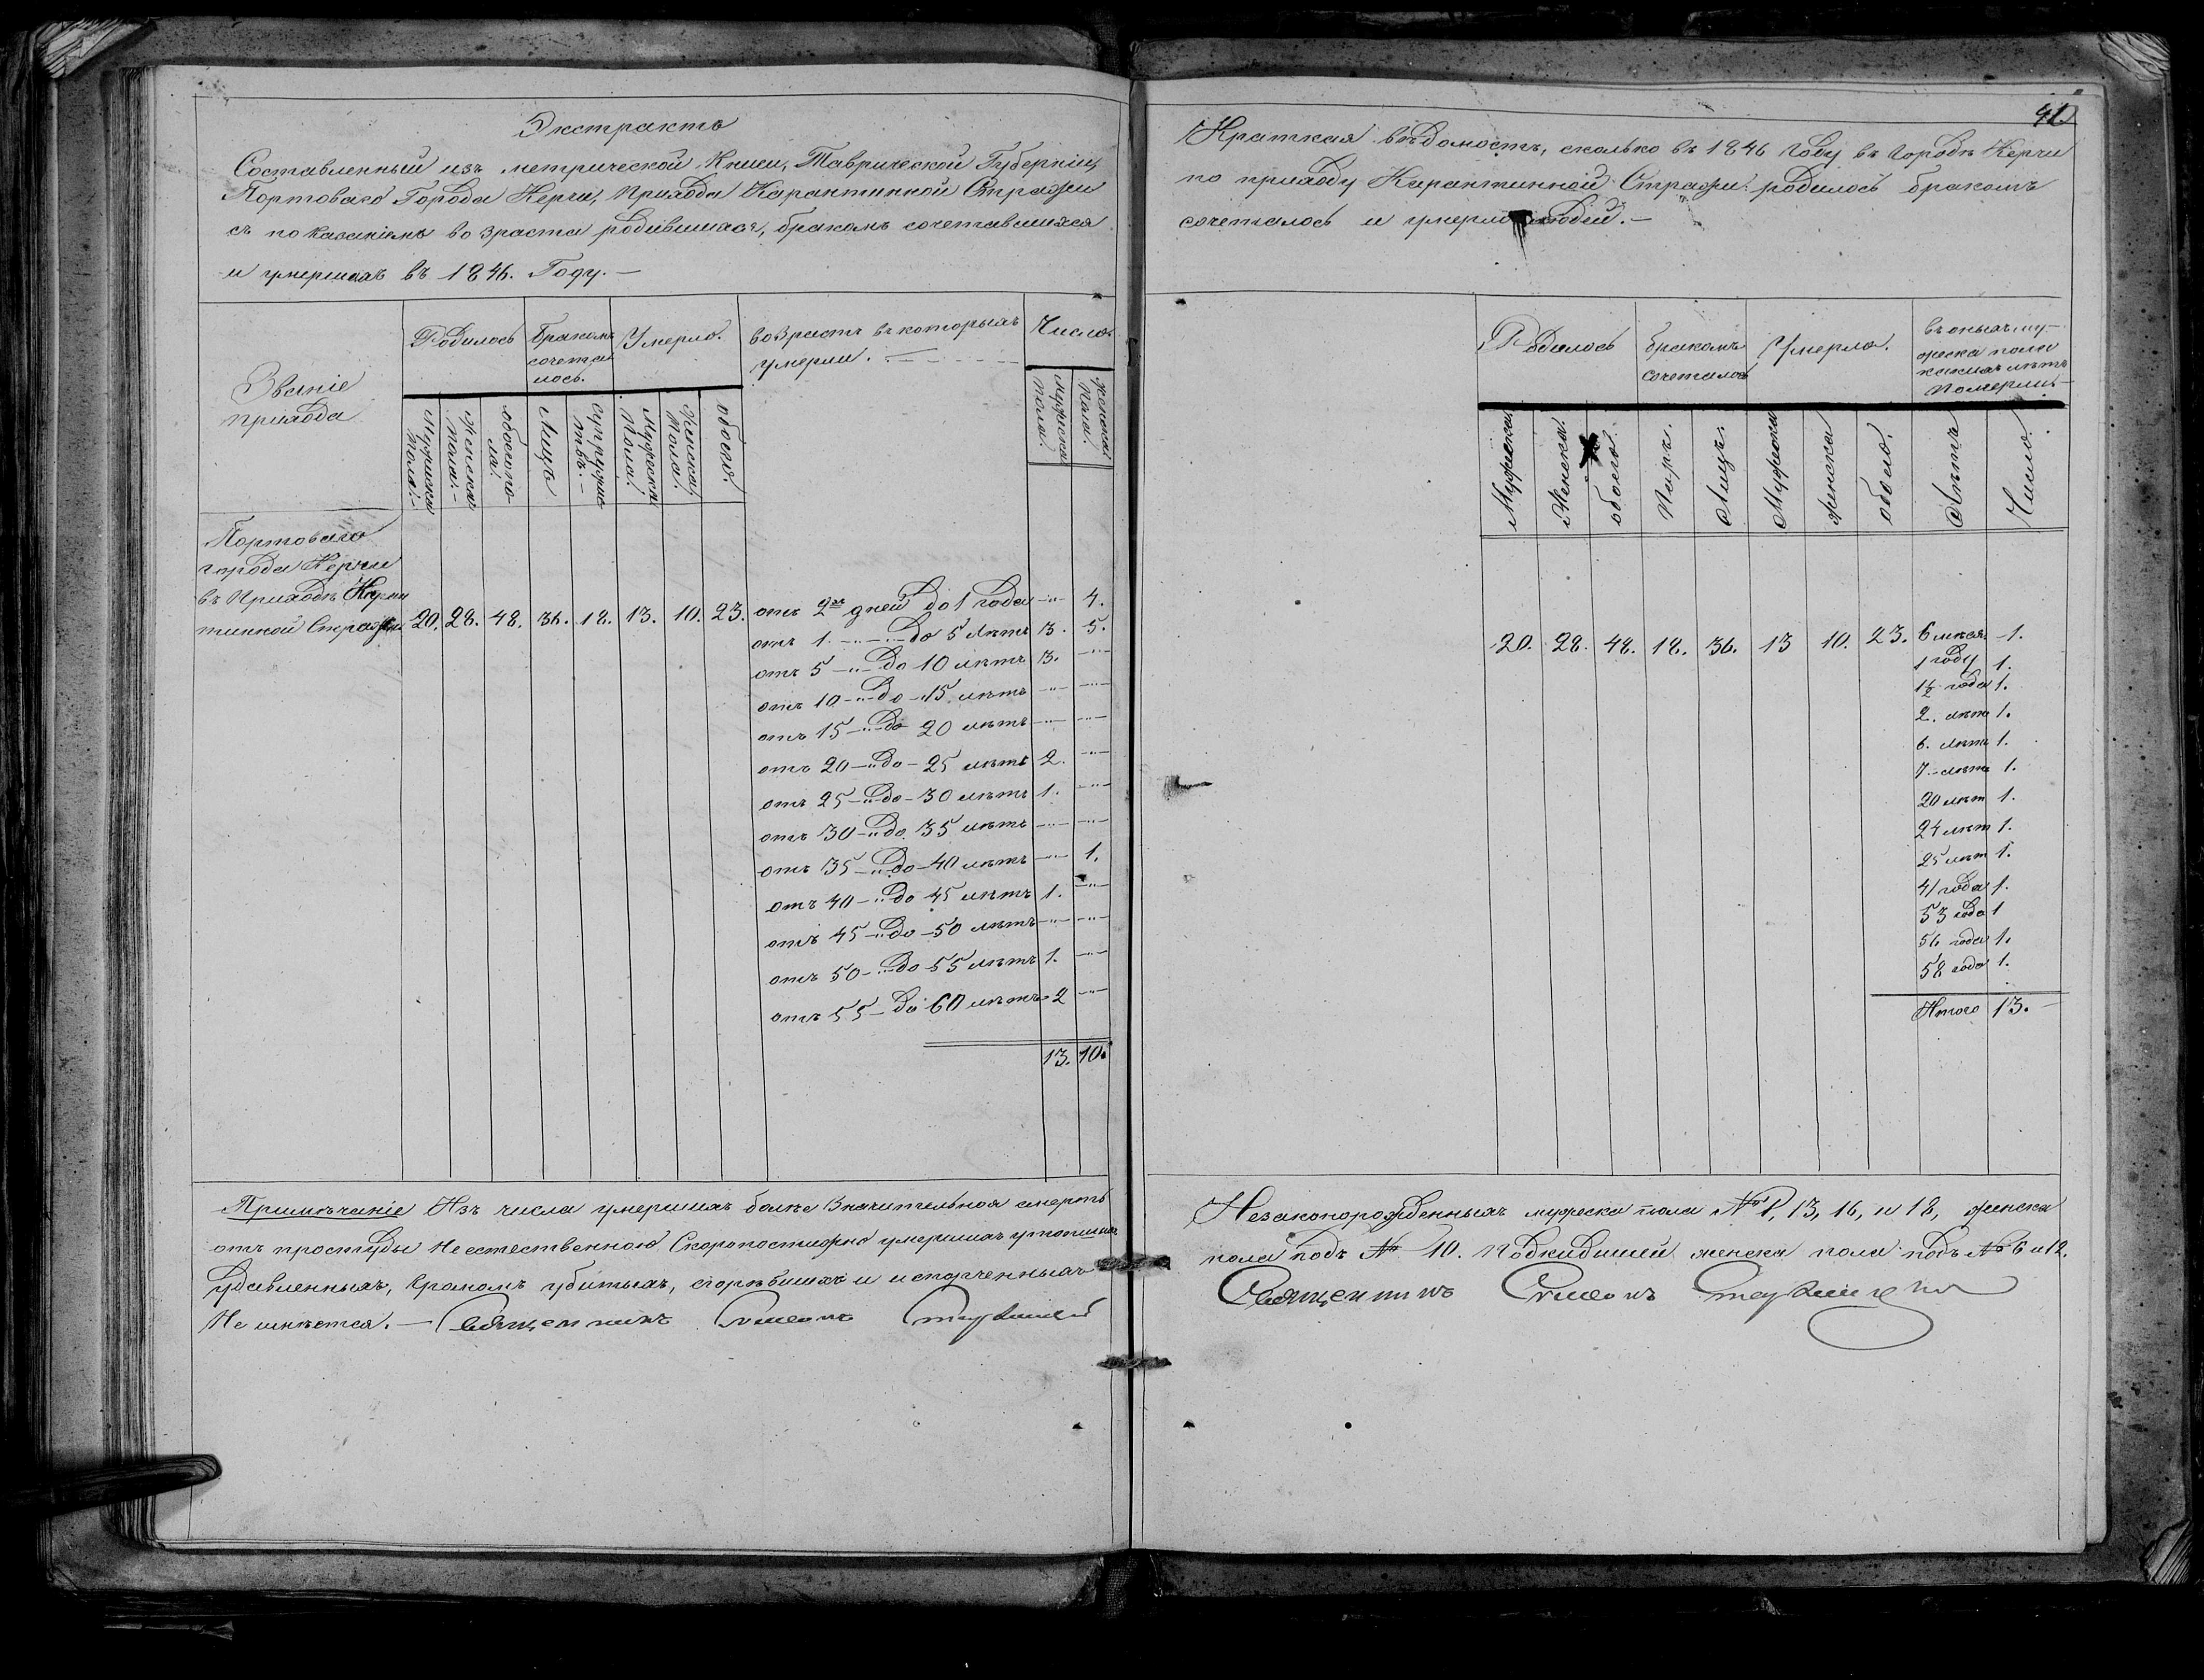 Экстрактъ
Составленный изъ метрической Книги, Таврической Губерніи,
Портоваго Города Керчи, Прихода Карантинной Стражи
съ показаніемъ возраста родившихся, бракомъ сочетавшихся
и умершихъ въ 1846. Году.—
Званіе прихода
Родилось
бракомъ сочеталось.
Умерло.
возрастъ въ которыхъ умерли.
Число.
Мужеска пола.
Женска пола.
обоего пола.
Лицъ
супружествъ.
Мужеска Пола.
Женска Пола.
обоего.
Мужеска пола.
женска пола.
Портоваго
города Керчи
въ Приходѣ Каран
тинной Стражи
20. 28. 48. 36. 18. 13. 10. 23.
отъ 2хъ дней до 1 года —"— 4.
отъ 1. —"— до 5 лѣтъ 3. 5.
отъ 5 —"— до 10 лѣтъ 3. —"—
отъ 10 —"— до 15 лѣтъ —"— —"—
отъ 15 —"— до 20 лѣтъ —"— —"—
отъ 20 —"— до — 25 лѣтъ 2. —"—
отъ 25 —"— до — 30 лѣтъ 1. —"—
отъ 30 —"— до 35 лѣтъ —"— —"—
отъ 35 —"— до — 40 лѣтъ —"— 1.
отъ 40 —"— до 45 лѣтъ 1. —"—
отъ 45 —"— до — 50 лѣтъ —"— —"—
отъ 50 —"— до 55 лѣтъ 1. —"—
отъ 55 — до 60 лѣтъ 2 —"—
13. 10.
Примѣчаніе Изъ числа умершихъ болѣе значительная смерть
отъ простуды неестественною Скоропостижно умершихъ утопших
удавленныхъ, громомъ убитыхъ, сгорѣвшихъ и
Не имѣется.— Священникъ Симеонъ
41
Краткая вѣдомость, сколько въ 1846 году въ городѣ Керчи
по приходу Карантинной Стражи родилось бракомъ
сочеталось и умерло людей.—
Родилось
бракомъ Сочеталось
Умерло.
въ оныхъ му-
жеска пола
какихъ лѣтъ
померли
Мужеска
Женска.
обоего.
Паръ.
Лицъ.
Мужеска
женска
обоего.
Лѣтъ
Число.
20. 28. 48. 18. 36. 13 10. 23. 6 мѣся. 1.
1 году 1.
1½ года 1.
2. лѣтъ 1.
6. лѣтъ 1.
7 лѣтъ 1.
20 лѣт 1.
24 лѣт 1.
25 лѣт 1.
41 года 1.
53 года 1
56 года 1.
58 года 1.
Итого 13.—
Незаконорожденныхъ мужеска пола № 1, 13, 16, и 18, женска
пола подъ № 10. женска пола подъ № 6 и 12.
Священникъ Симеонъ